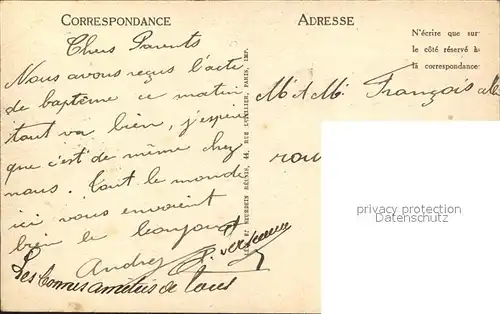 CORRESPONDANCE
ADRESSE
N'écrire que sur
le côté réservé à
la correspondance
Chers Parents
Nous avons reçus l'acte
de baptême ce matin
tout va bien, j'espère
que c'est de même chez
nous. Tout le monde
ici vous envoient
bien le bonjour
André
Les bonnes amitiés de tous
M. & Mme François
rou
RUE LETELLIER, PARIS, IMP.
privacy protection
Datenschutz